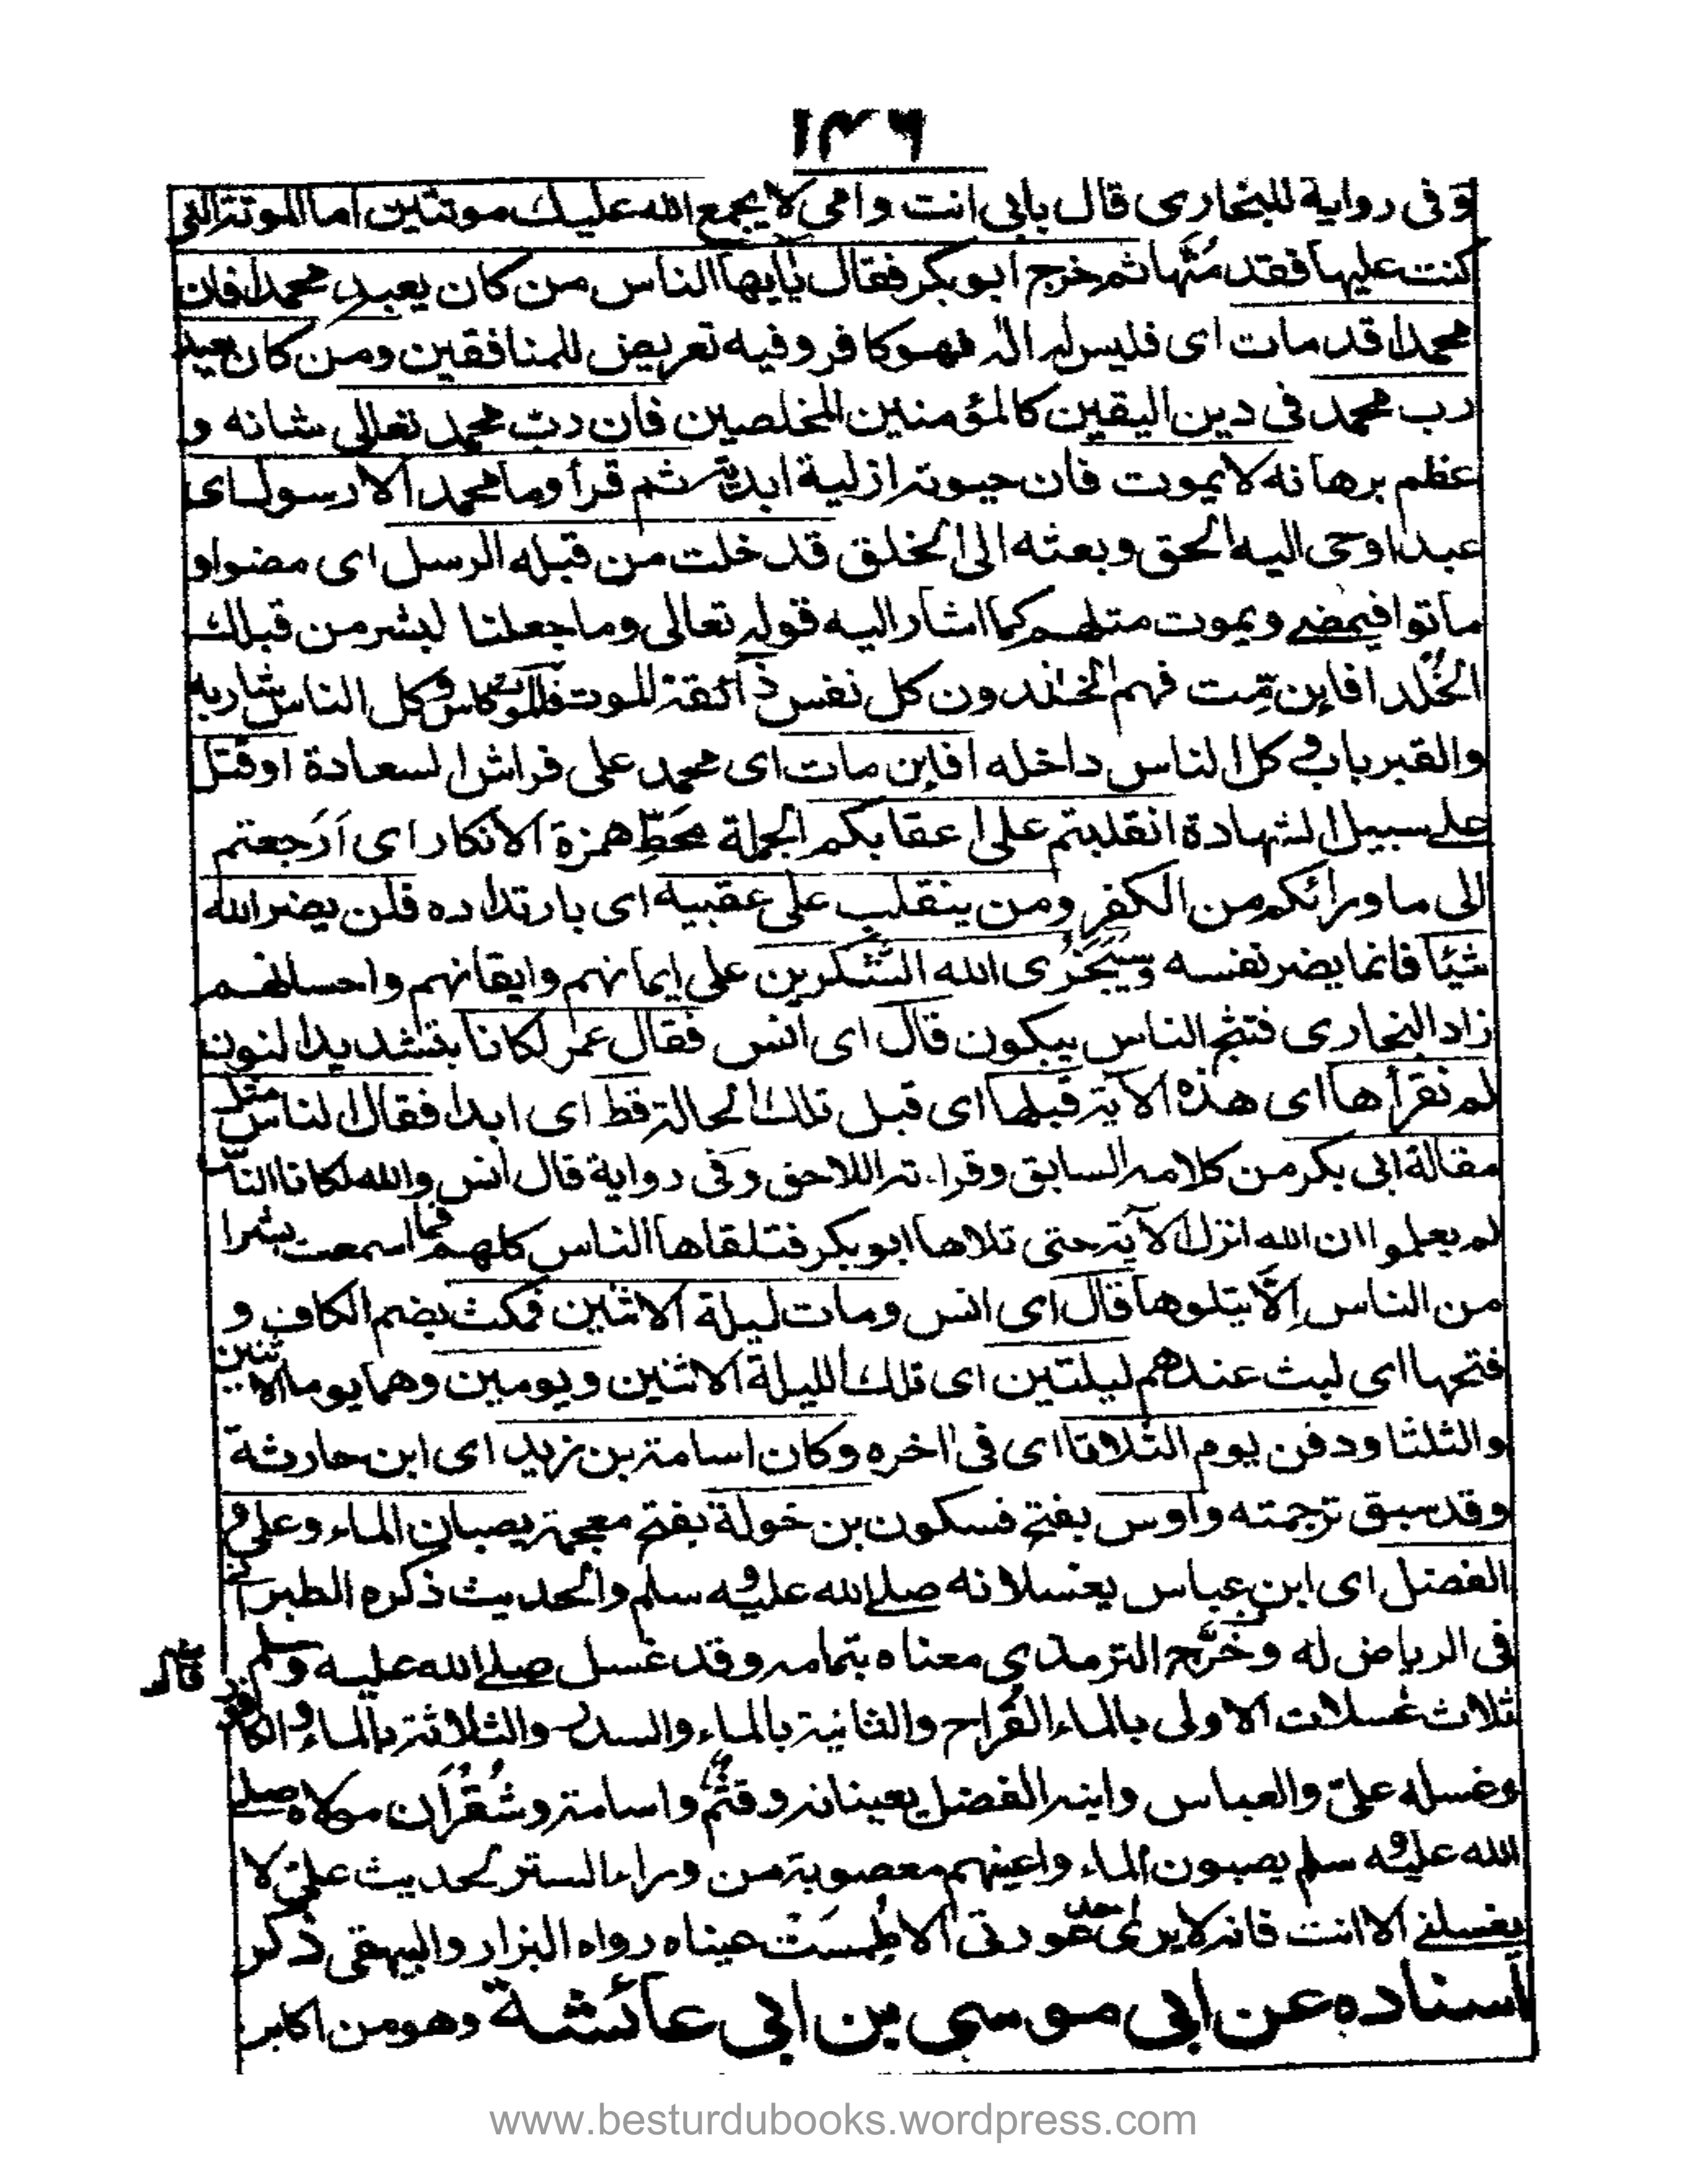 ١٣٦
وفى رواية للبخارى قال بابى انت وامى لا يجمع الله عليك موتتين اما الموتة التى
كنت عليها فقد متّها ثم خرج ابو بكر فقال يايها الناس من كان يعبد محمدا فان
محمدا قد مات اى فليس له اله فهو كافر وفيه تعريض للمنافقين ومن كان يعبد
رب محمد فى دين اليقين كالمؤمنين المخلصين فان ربّ محمد تعالى شانه و
عظم برهانه لا يموت فان حيوته ازلية ابدية ثم قرأ وما محمد الا رسول اى
عبد اوحى اليه الحق وبعثه الى الخلق قد خلت من قبله الرسل اى مضوا و
ماتوا فيمضے ويموت مثلهم كما اشار اليه قوله تعالى وما جعلنا لبشر من قبلك
الخُلد افاين مّت فهم الخلدون كل نفس ذائقة الموت فالموت كاس وكل الناس شاربه
والقبر باب وكل الناس داخله افاين مات اى محمد على فراش السعادة او قتل
علے سبيل الشهادة انقلبتم على اعقابكم الجملة محَطّ همزة الانكار اى اَرَجعتم
الى ما ورائكم من الكفر ومن ينقلب على عقبيه اى بارتداده فلن يضر الله
شيئا فانما يضر نفسه وسيجزى الله الشكرين على ايمانهم وايقانهم واحسانهم
زاد البخارى فنشج الناس يبكون قال اى انس فقال عمر لكانا بتشديد النون
لم نقرأها اى هذه الاية قبلها اى قبل تلك الحالة قط اى ابدا فقال الناس مثل
مقالة ابى بكر من كلامه السابق وقراءته اللاحق وفى رواية قال انس والله لكانا الناس
لم يعلموا ان الله انزل الآية حتى تلاها ابو بكر فتلقاها الناس كلهم فما اسمعت بشرا
من الناس اِلاَّ يتلوها قال اى انس ومات ليلة الاثنين فمكث بضم الكاف و
فتحها اى لبث عندهم ليلتين اى تلك الليلة الاثنين ويومين وهما يوما الاثنين
والثلثا ودفن يوم الثلاثا اى فى اخره وكان اسامة بن زيد اى ابن حارثة
وقد سبق ترجمته واوس بفتح فسكون بن خولة بفتح معجمة يصبان الماء وعلى و
الفضل اى ابن عباس يغسلانه صلے الله عليه وسلم والحديث ذكره الطبرانے
فى الرياض له وخرّج الترمذى معناه بتمامه وقد غسل صلے الله عليه وسلم
ثلاث غسلات الاولى بالماء القراح والثانية بالماء والسدر والثلاثة بالماء والكافور
وغسله علىّ والعباس وابنه الفضل يعينانه وقثم واسامة وشُقْرَان مولاه صلے
الله عليه وسلم يصبون الماء واعينهم معصوبة من وراء الستر لحديث علىّ لا
يغسلنے الا انت فانه لا يرى احد عورتى الا طُمِسَتْ عيناه رواه البزار والبيهقى ذكر
اسناده عن ابى موسى بن ابى عائشة وهو من اكابر
www.besturdubooks.wordpress.com